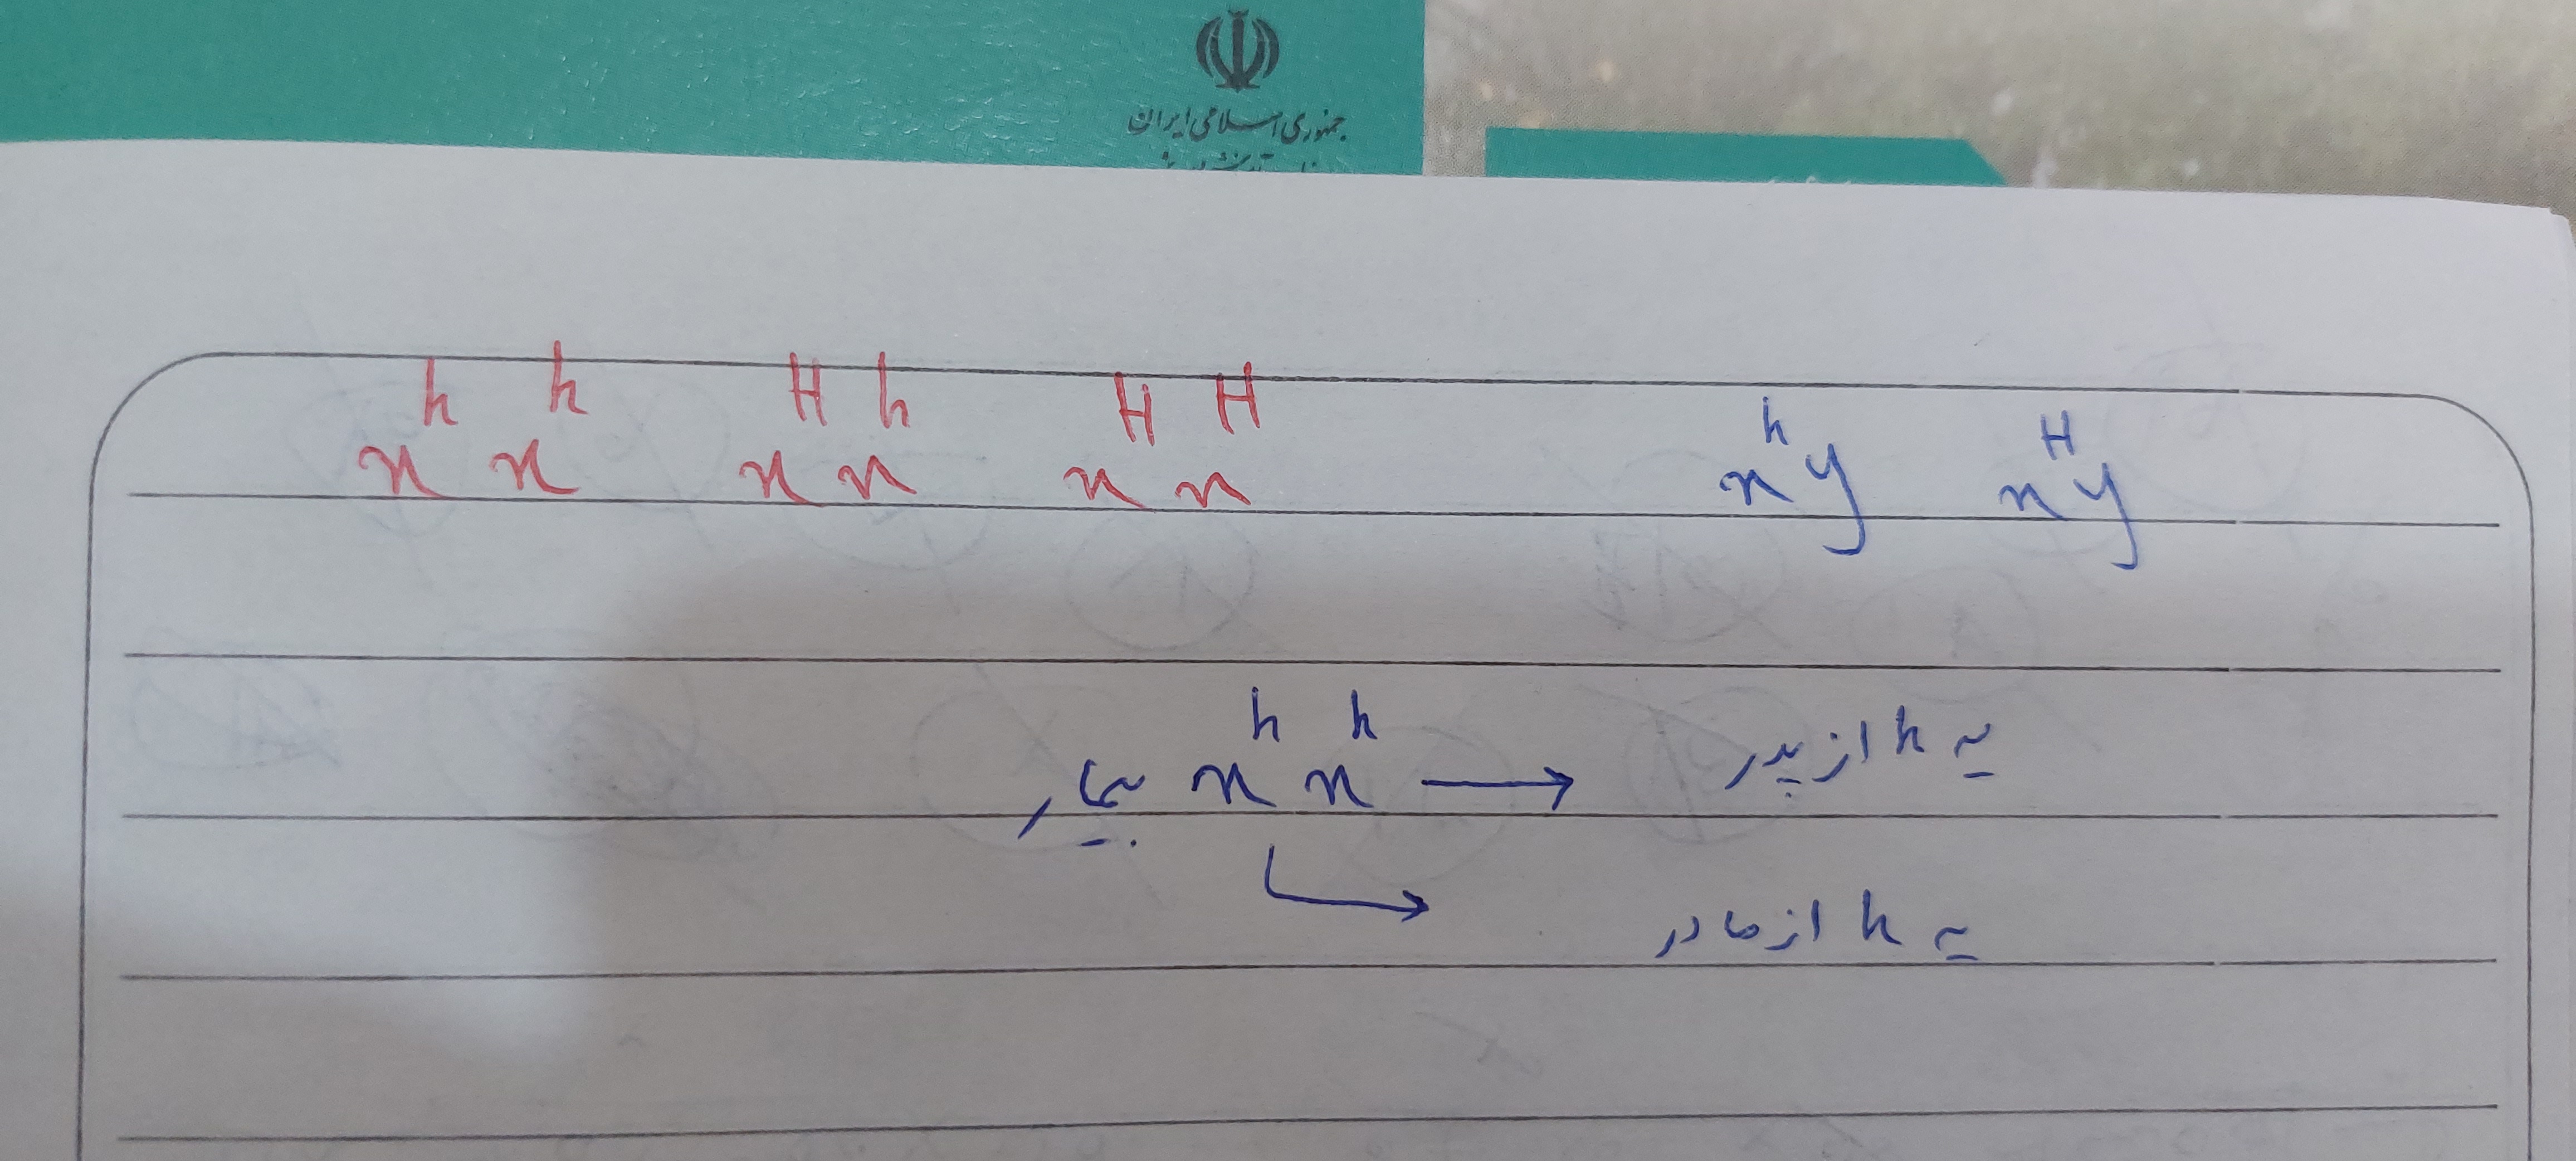 جمهوری اسلامی ایران
xʰ xʰ   xᴴ xʰ   xᴴ xᴴ   xʰy   xᴴy
بیمار xʰ xʰ → یه h از پدر
یه h از مادر